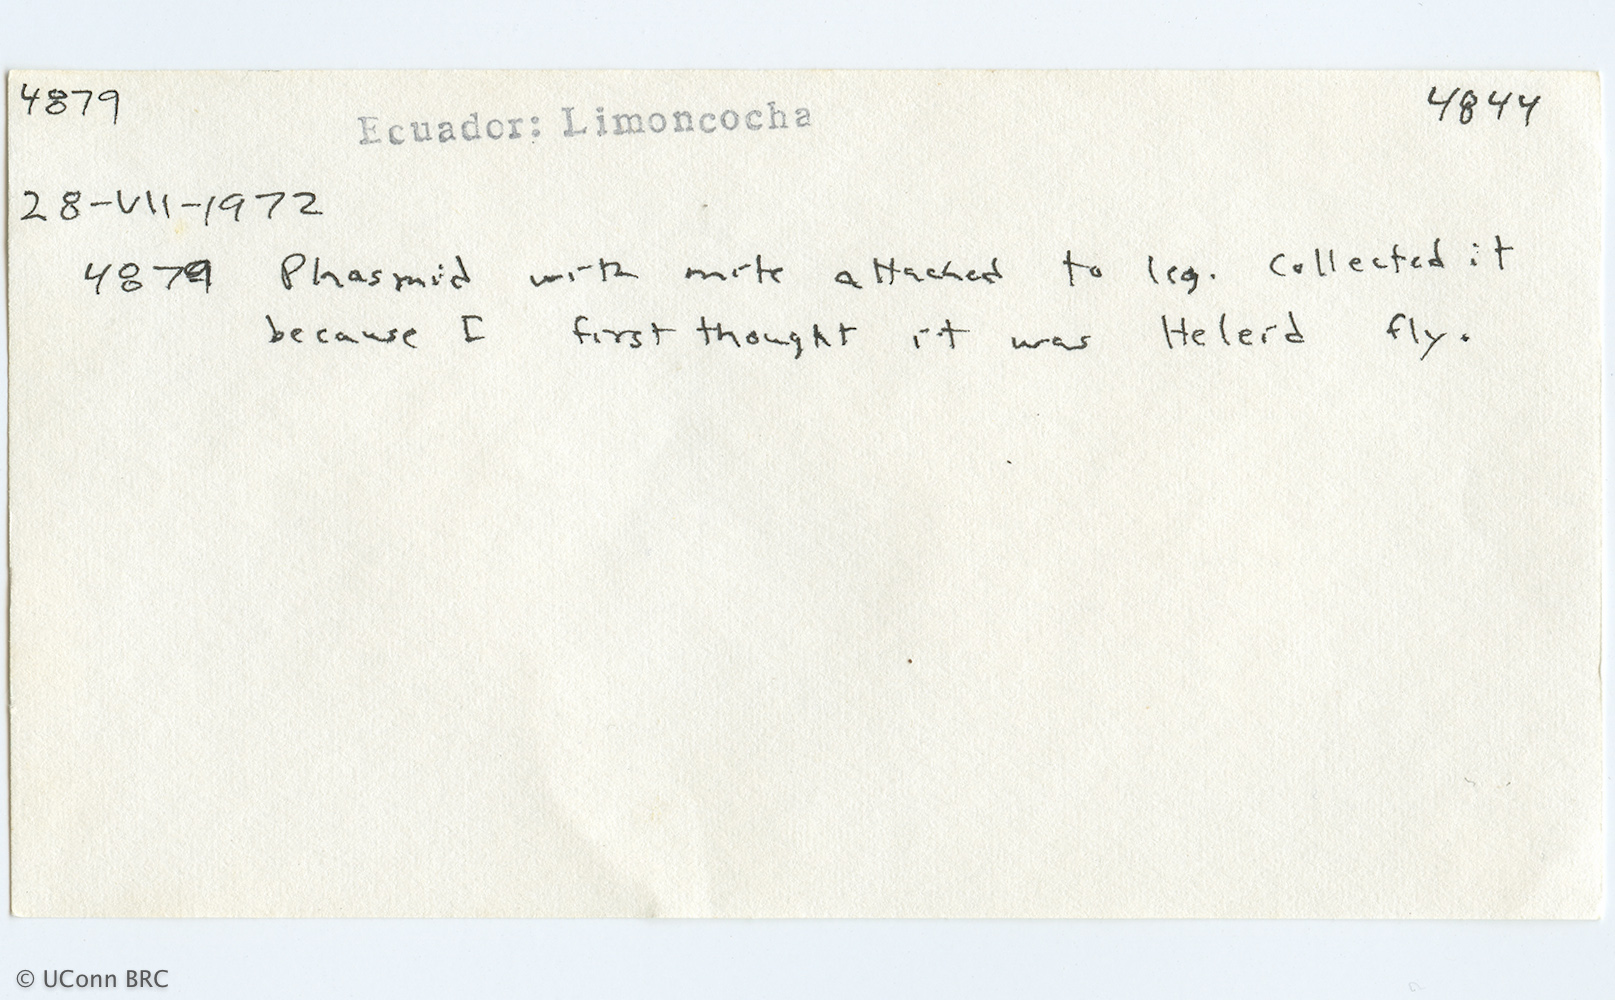 4879
Ecuador: Limoncocha
4844
28-VII-1972
4879 Phasmid with mite attached to leg. Collected it
because I first thought it was Heleid fly.
© UConn BRC